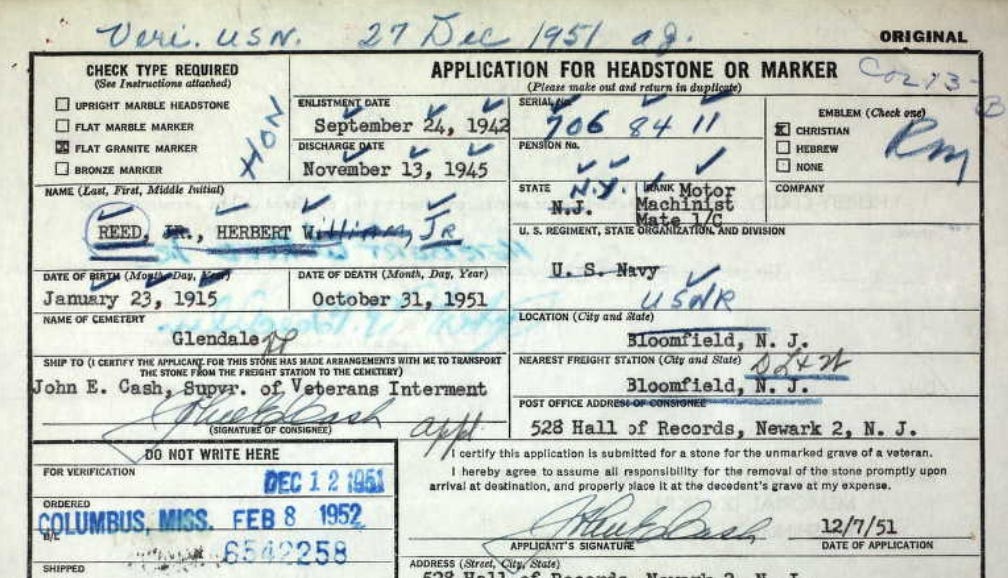 Veri. USN. 27 Dec 1951 ag.
ORIGINAL
CHECK TYPE REQUIRED
(See Instructions attached)
UPRIGHT MARBLE HEADSTONE
FLAT MARBLE MARKER
FLAT GRANITE MARKER
BRONZE MARKER
HON
APPLICATION FOR HEADSTONE OR MARKER
(Please make out and return in duplicate)
ENLISTMENT DATE
September 24, 1942
DISCHARGE DATE
November 13, 1945
SERIAL No.
706 84 11
PENSION No.
EMBLEM (Check one)
CHRISTIAN
HEBREW
NONE
NAME (Last, First, Middle Initial)
REED, JR., HERBERT William, Jr
STATE N.Y.
N.J.
RANK Motor
Machinist
Mate 1/C
COMPANY
U. S. REGIMENT, STATE ORGANIZATION, AND DIVISION
U. S. Navy
USNR
DATE OF BIRTH (Month, Day, Year)
January 23, 1915
DATE OF DEATH (Month, Day, Year)
October 31, 1951
NAME OF CEMETERY
Glendale
LOCATION (City and State)
Bloomfield, N. J.
SHIP TO (I CERTIFY THE APPLICANT FOR THIS STONE HAS MADE ARRANGEMENTS WITH ME TO TRANSPORT
THE STONE FROM THE FREIGHT STATION TO THE CEMETERY)
John E. Cash, Supvr. of Veterans Interment
John E Cash
(SIGNATURE OF CONSIGNEE)
appl.
NEAREST FREIGHT STATION (City and State) DL+W
Bloomfield, N. J.
POST OFFICE ADDRESS OF CONSIGNEE
528 Hall of Records, Newark 2, N. J.
DO NOT WRITE HERE
FOR VERIFICATION
DEC 12 1951
ORDERED
COLUMBUS, MISS. FEB 8 1952
B/L
6542258
SHIPPED
I certify this application is submitted for a stone for the unmarked grave of a veteran.
I hereby agree to assume all responsibility for the removal of the stone promptly upon
arrival at destination, and properly place it at the decedent's grave at my expense.
John E Cash
12/7/51
APPLICANT'S SIGNATURE
DATE OF APPLICATION
ADDRESS (Street, City, State)
528 Hall of Records, Newark 2, N. J.